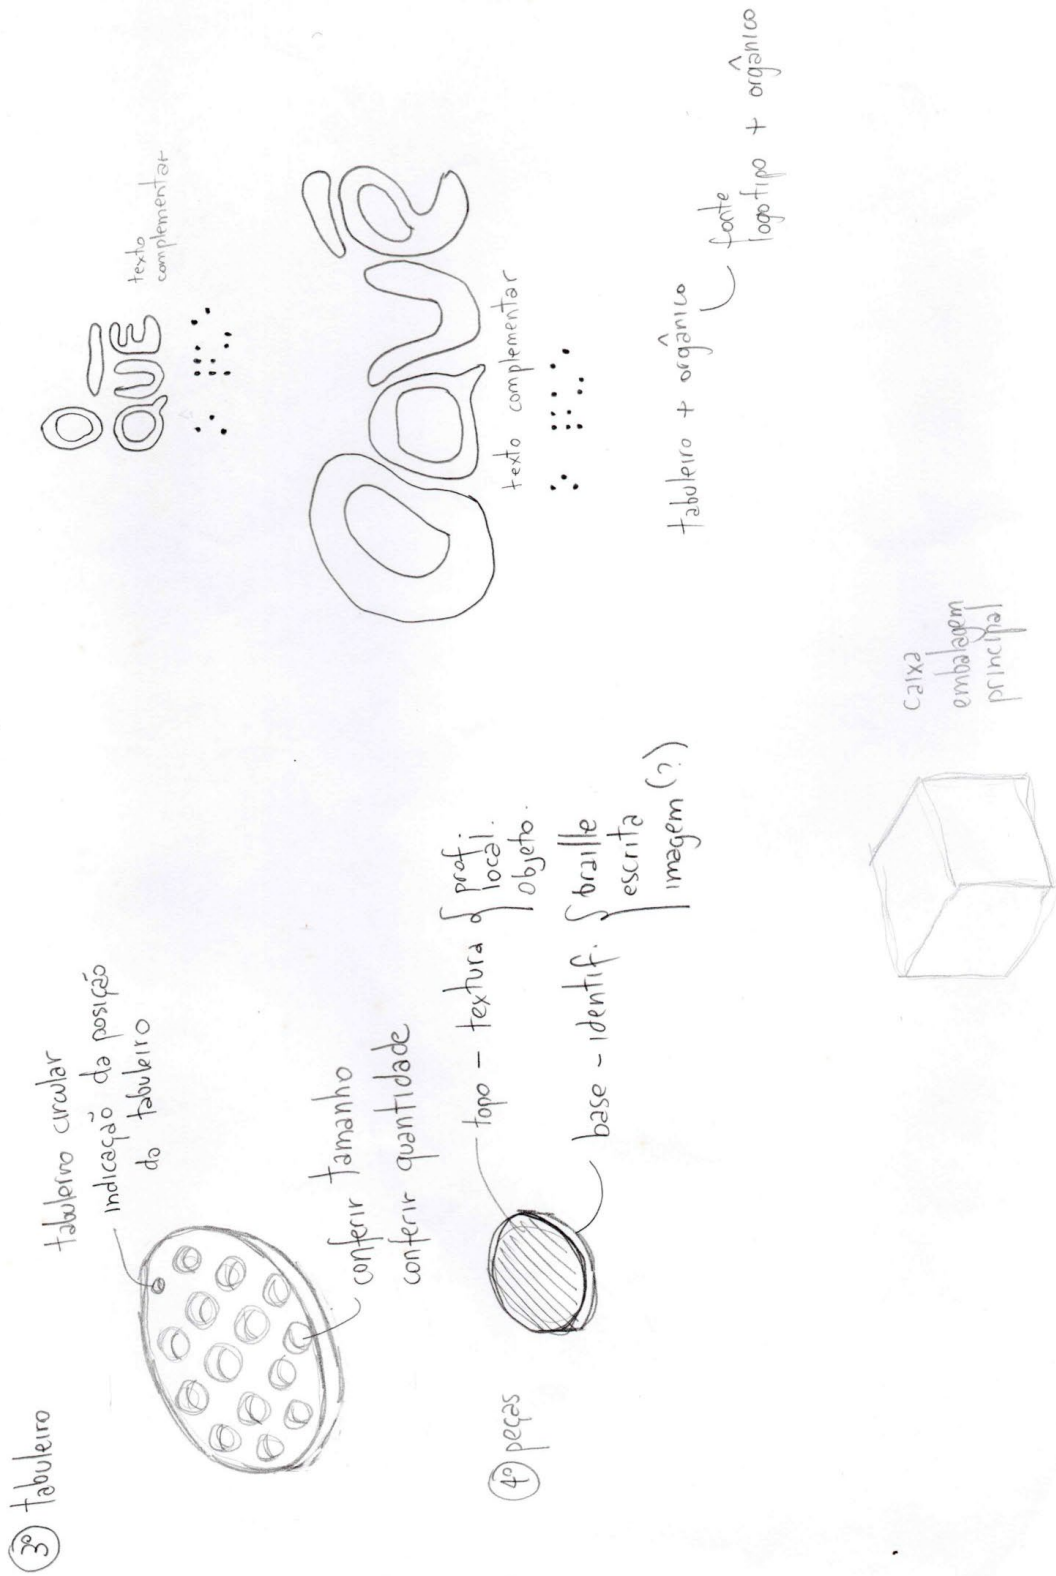 3º tabuleiro
tabuleiro circular
indicação da posição
do tabuleiro
conferir tamanho
conferir quantidade
4º peças
topo – textura { prof.
local.
objeto.
base – identif. { braille
escrita
imagem (?)
O
QUE
texto
complementar
⠕ ⠟⠥⠑
OQUE
texto complementar
⠕ ⠟⠥⠑
tabuleiro + orgânico
fonte
logotipo + orgânico
caixa
embalagem
principal